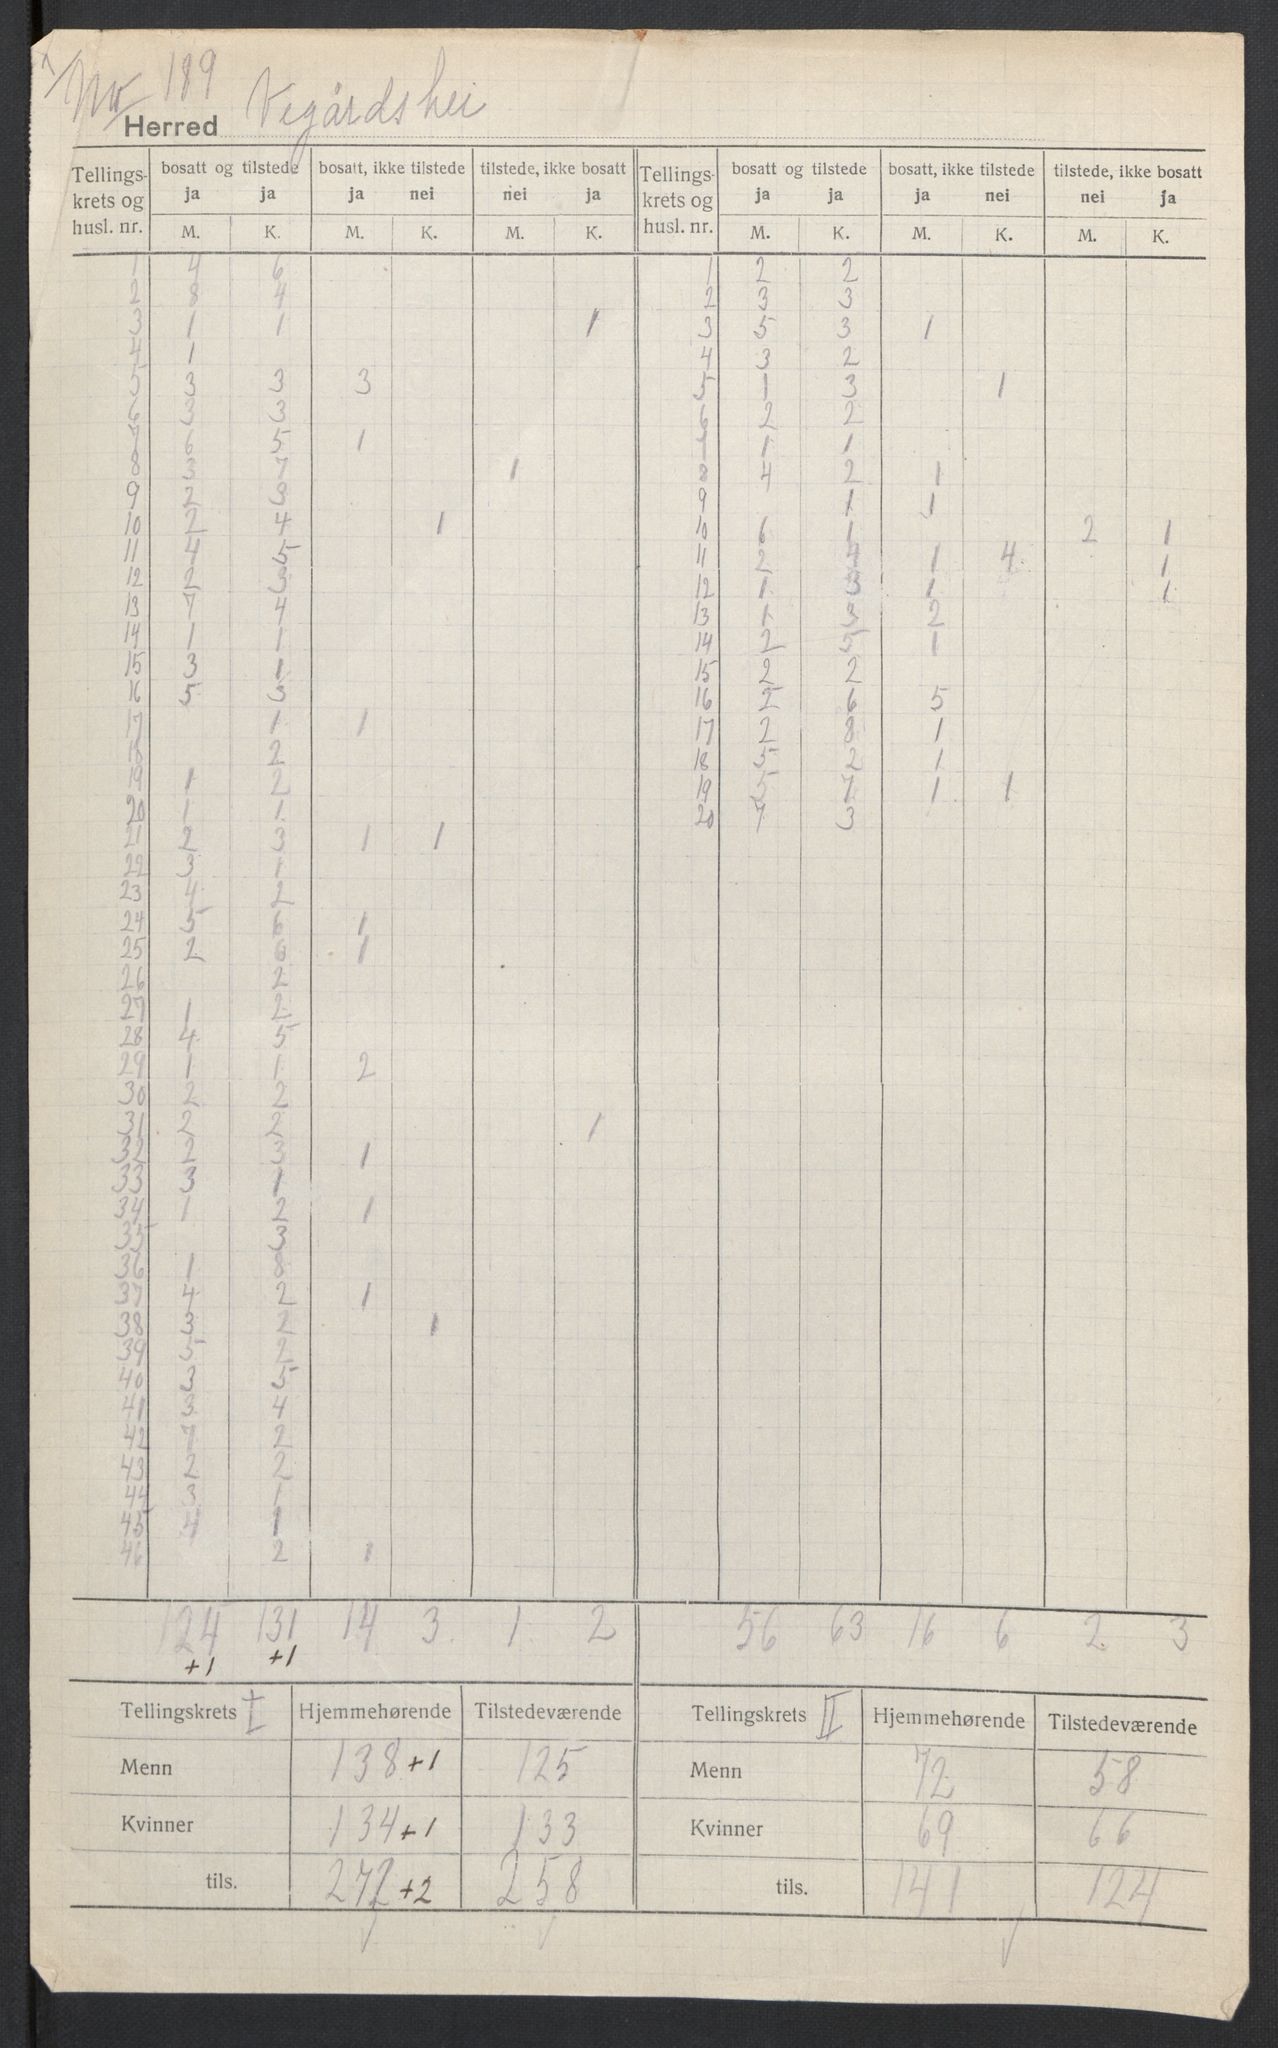 No 189
Herred Vegårdshei
Tellingskrets og husl. nr. | bosatt og tilstede ja ja | bosatt, ikke tilstede ja nei | tilstede, ikke bosatt nei ja | Tellingskrets og husl. nr. | bosatt og tilstede ja ja | bosatt, ikke tilstede ja nei | tilstede, ikke bosatt nei ja
M. K. M. K. M. K. M. K. M. K. M. K.
1 4 6 | 1 2 2
2 8 4 | 2 3 3
3 1 1 1 | 3 5 3 1
4 1 | 4 3 2
5 3 3 3 | 5 1 3 1
6 3 3 | 6 2 2
7 6 5 1 | 7 1 1
8 3 7 1 | 8 4 2 1
9 2 3 | 9 1 1
10 2 4 1 | 10 6 1 2 1
11 4 5 | 11 2 4 1 4 1
12 2 3 | 12 1 3 1 1
13 7 4 | 13 1 3 2
14 1 1 | 14 2 5 1
15 3 1 | 15 2 2
16 5 3 | 16 2 6 5
17 1 1 | 17 2 8 1
18 2 | 18 5 2 1
19 1 2 | 19 5 7 1 1
20 1 1 | 20 7 3
21 2 3 1 1
22 3 1
23 4 2
24 5 6 1
25 2 6 1
26 2
27 1 2
28 4 5
29 1 1 2
30 2 2
31 2 2 1
32 2 3 1
33 3 1
34 1 2 1
35 3
36 1 8
37 4 2 1
38 3 2 1
39 5 2
40 3 5
41 3 4
42 7 2
43 2 2
44 3 1
45 4 1
46 2 1
124 131 14 3 1 2 | 56 63 16 6 2 3
+1 +1
Tellingskrets I Hjemmehørende Tilstedeværende | Tellingskrets II Hjemmehørende Tilstedeværende
Menn 138 +1 125 | Menn 72 58
Kvinner 134 +1 133 | Kvinner 69 66
tils. 272 +2 258 | tils. 141 124